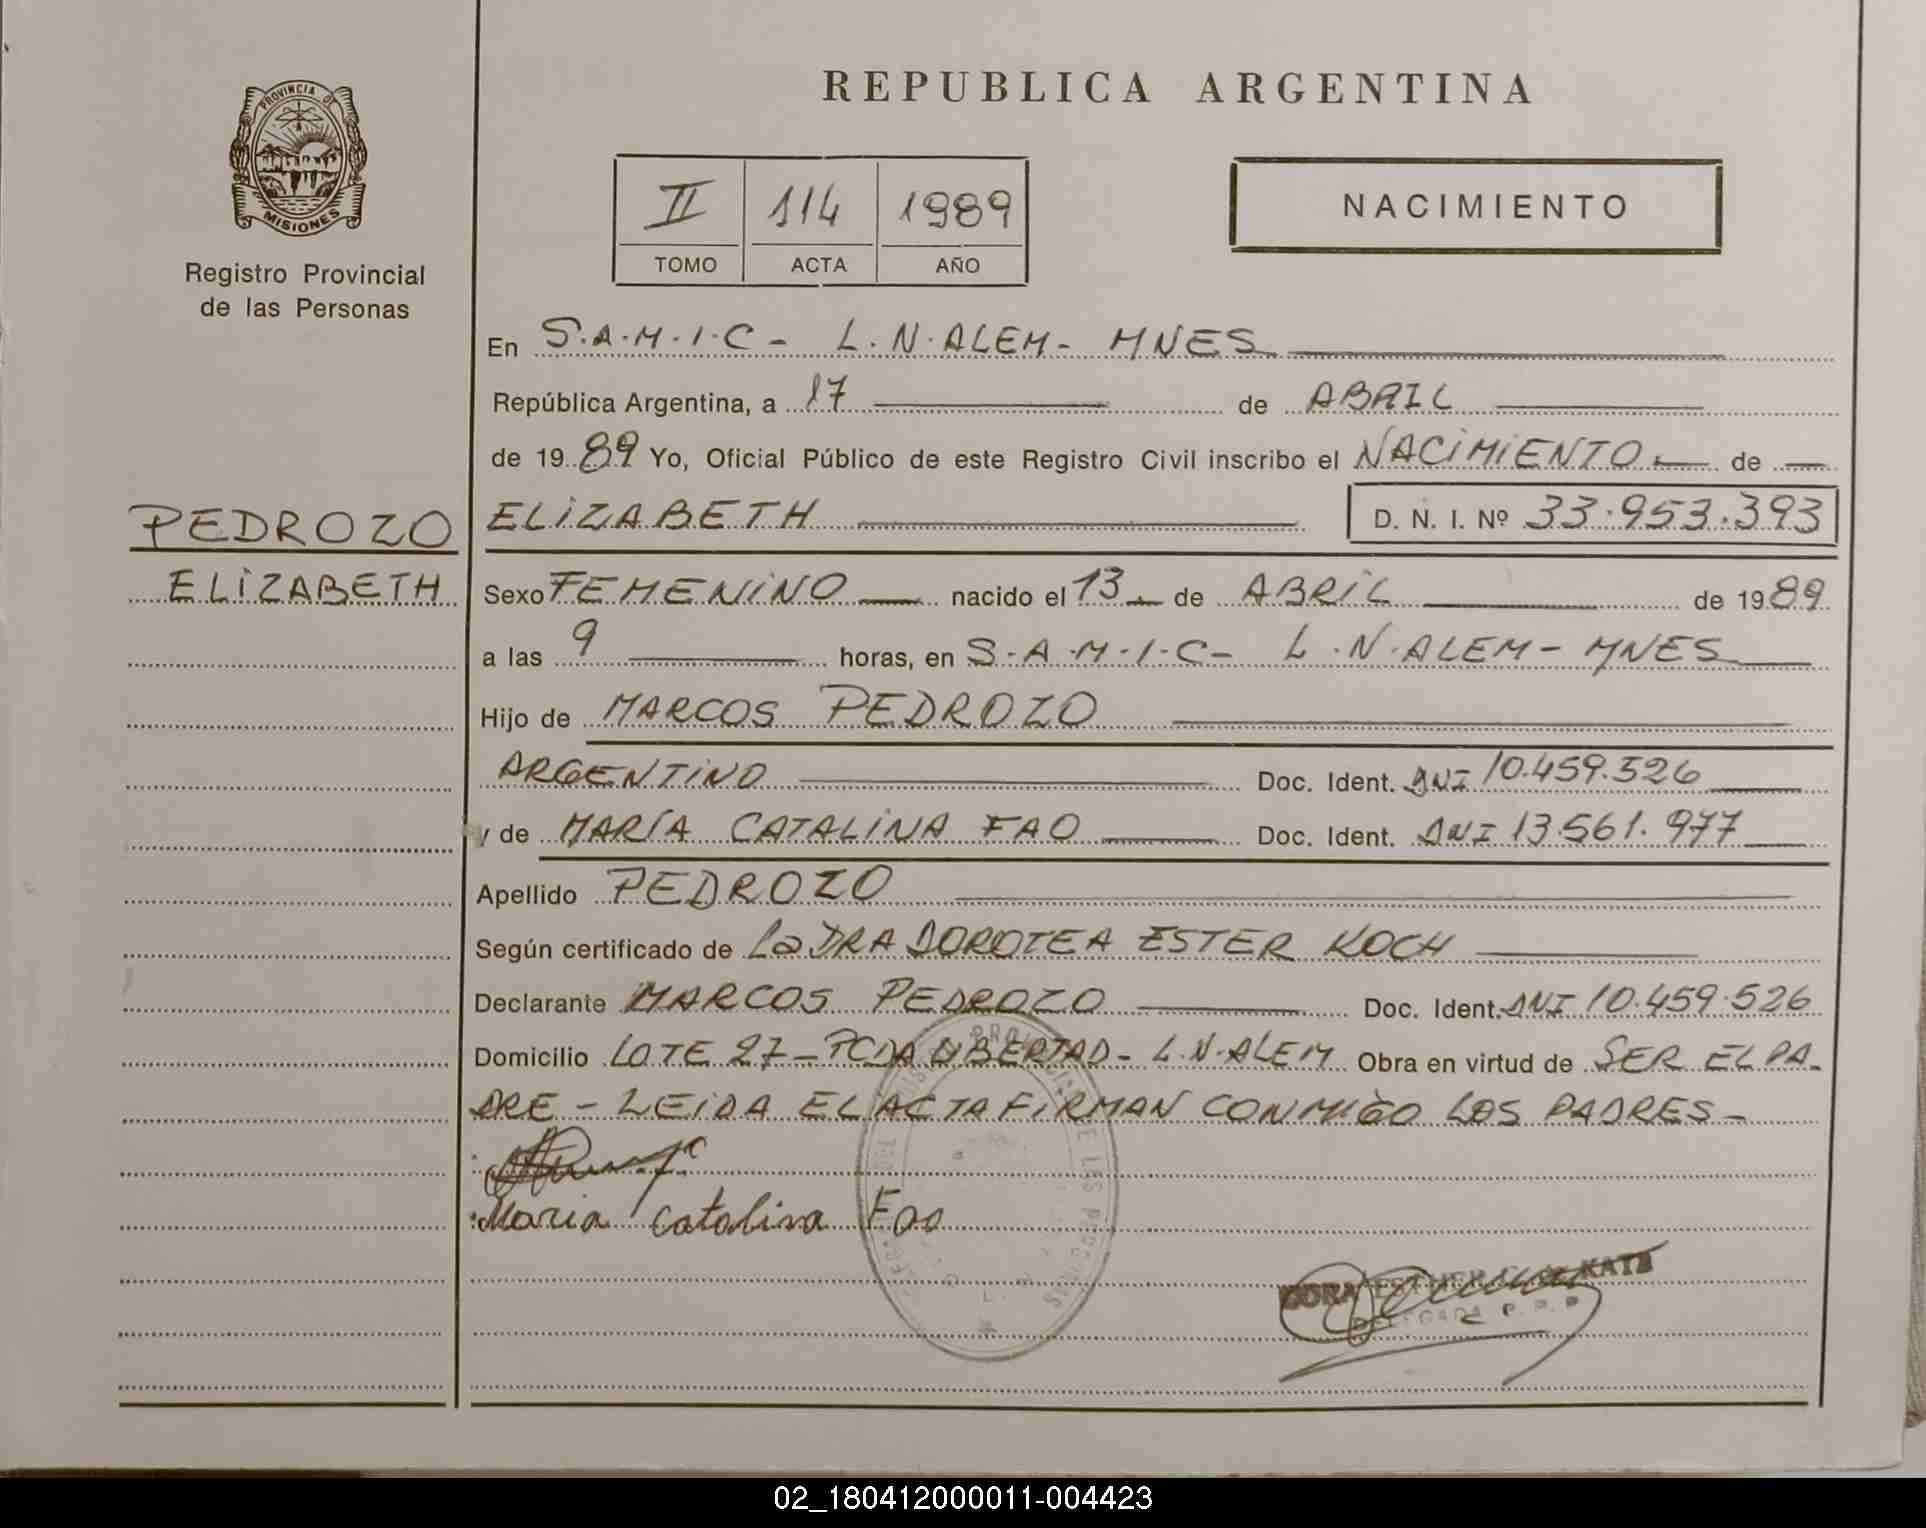 REPUBLICA ARGENTINA
PROVINCIA DE
MISIONES
Registro Provincial
de las Personas
II 114 1989
TOMO ACTA AÑO
NACIMIENTO
En S.A.M.I.C- L.N.ALEM- MNES
República Argentina, a 17 de ABRIL
de 1989 Yo, Oficial Público de este Registro Civil inscribo el NACIMIENTO de
PEDROZO
ELIZABETH
ELIZABETH D. N. I. Nº 33.953.393
Sexo FEMENINO nacido el 13 de ABRIL de 1989
a las 9 horas, en S.A.M.I.C- L.N.ALEM- MNES
Hijo de MARCOS PEDROZO
ARGENTINO Doc. Ident. DNI 10.459.526
y de MARÍA CATALINA FAO Doc. Ident. DNI 13.561.977
Apellido PEDROZO
Según certificado de La DRA DOROTEA ESTER KOCH
Declarante MARCOS PEDROZO Doc. Ident. DNI 10.459.526
Domicilio LOTE 27-PCDA LIBERTAD- L.N.ALEM Obra en virtud de SER EL PA-
DRE - LEIDA EL ACTA FIRMAN CONMIGO LOS PADRES-
Maria Catalina Fao
DORA ESTHER KATZ
DELEGADA R. P. P.
02_180412000011-004423